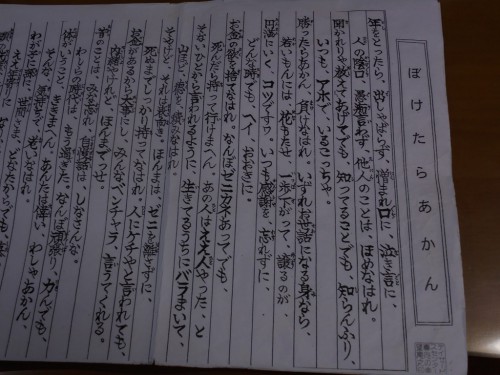 ぼけたらあかん
年をとったら、出しゃばらず、憎まれ口に、泣き言に、
人の陰口、愚痴言わず、他人のことは、ほめなはれ。
聞かれりゃ教えてあげてでも、知ってることでも、知らんふり、
いつも、アホで、いるこっちゃ。
勝ったらあかん、負けなはれ。いずれお世話になる身なら、
若いもんには、花もたせ、一歩下がって、譲るのが、
円満にいく、コツですワ。いつも感謝を、忘れずに、
どんな時でも、ヘイおおきに。
お金の欲を、捨てなはれ。なんぼゼニカネあってでも、
死んだら持って行けまへん。あの人はええ人やった、と
そないひとから言われるように、生きてるうちにバラまいて、
山ほど、徳を積みなはれ。
そやけど、それは表向き。ほんまは、ゼニを離さずに、
死ぬまでしっかり持ってなはれ。人にケチやと言われても、
お金があるから大事にし、みんなベンチャラ、言うてくれる。
内緒やけれど、ほんまでっせ。
昔のことは、みな忘れ、自慢話は、しなさんな。
わしらの時代は、もう過ぎた。なんぼ頑張り、力んでも、
体がいうこと、ききまへん。あんたは偉い、わしゃあかん、
そんな気持で、おりなはれ。